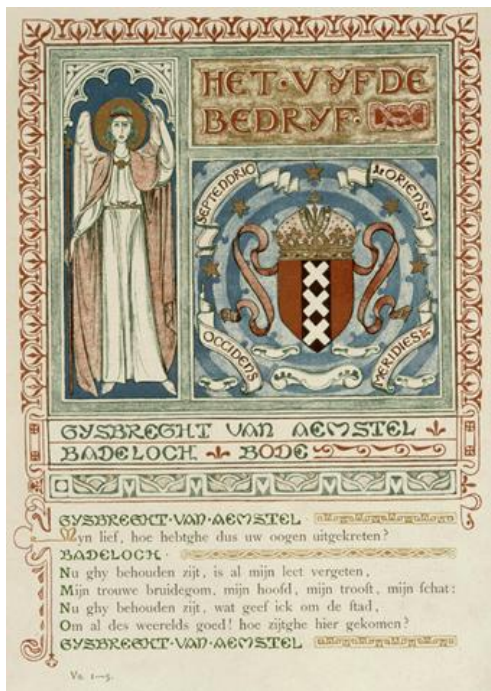 HET·VYFDE
BEDRYF·
SEPTENDRIO
ORIENS
OCCIDENS
MERIDIES
GYSBREGHT VAN AEMSTEL
BADELOCH BODE
GYSBREGHT·VAN·AEMSTEL
Myn lief, hoe hebtghe dus uw oogen uitgekreten?
BADELOCH·
Nu ghy behouden zijt, is al mijn leet vergeten,
Mijn trouwe bruidegom, mijn hoofd, mijn trooſt, mijn ſchat:
Nu ghy behouden zijt, wat geef ick om de ſtad,
Om al des weerelds goed! hoe zijtghe hier gekomen?
GYSBREGHT·VAN·AEMSTEL
Vs. 1—5.